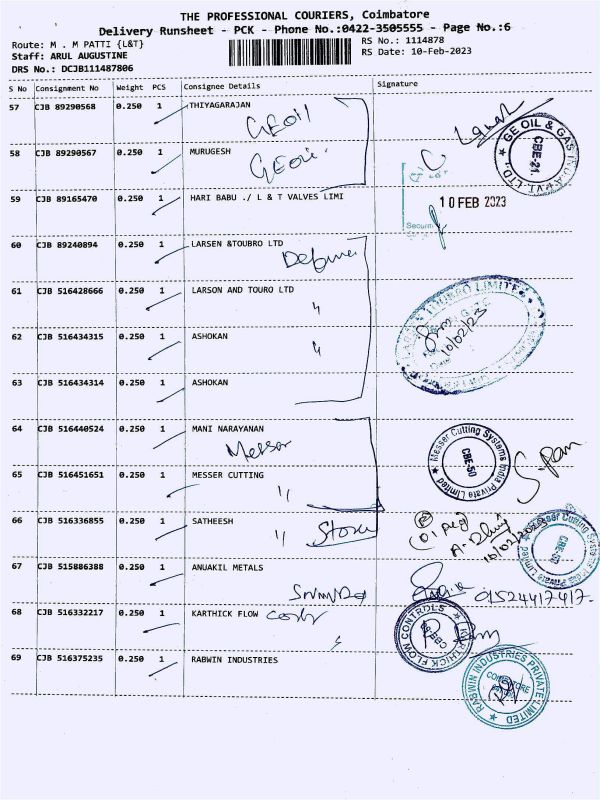 THE PROFESSIONAL COURIERS, Coimbatore
Delivery Runsheet - PCK - Phone No.:0422-3505555 - Page No.:6
Route: M . M PATTI {L&T}
RS No.: 1114878
Staff: ARUL AUGUSTINE
RS Date: 10-Feb-2023
DRS No.: DCJB111487806
S No Consignment No Weight PCS Consignee Details Signature
57 CJB 89290568 0.250 1 THIYAGARAJAN
GEOil
58 CJB 89290567 0.250 1 MURUGESH
GEOil
GE OIL & GAS INDIA PVT. LTD.
CBE-21
59 CJB 89165470 0.250 1 HARI BABU ./ L & T VALVES LIMI
10 FEB 2023
Securi
60 CJB 89240894 0.250 1 LARSEN &TOUBRO LTD
61 CJB 516428666 0.250 1 LARSON AND TOURO LTD
"
10/02/23
62 CJB 516434315 0.250 1 ASHOKAN
"
63 CJB 516434314 0.250 1 ASHOKAN
64 CJB 516440524 0.250 1 MANI NARAYANAN
Messer
Messer Cutting Systems India Private Limited
CBE-50
65 CJB 516451651 0.250 1 MESSER CUTTING
"
66 CJB 516336855 0.250 1 SATHEESH
" Store
10/02/2023
Messer Cutting Systems India Private Limited
CBE-50
67 CJB 515886388 0.250 1 ANUAKIL METALS
01524417417.
68 CJB 516332217 0.250 1 KARTHICK FLOW
KARTHICK FLOW CONTROLS
69 CJB 516375235 0.250 1 RABWIN INDUSTRIES
RABWIN INDUSTRIES PRIVATE LIMITED
COIMBATORE